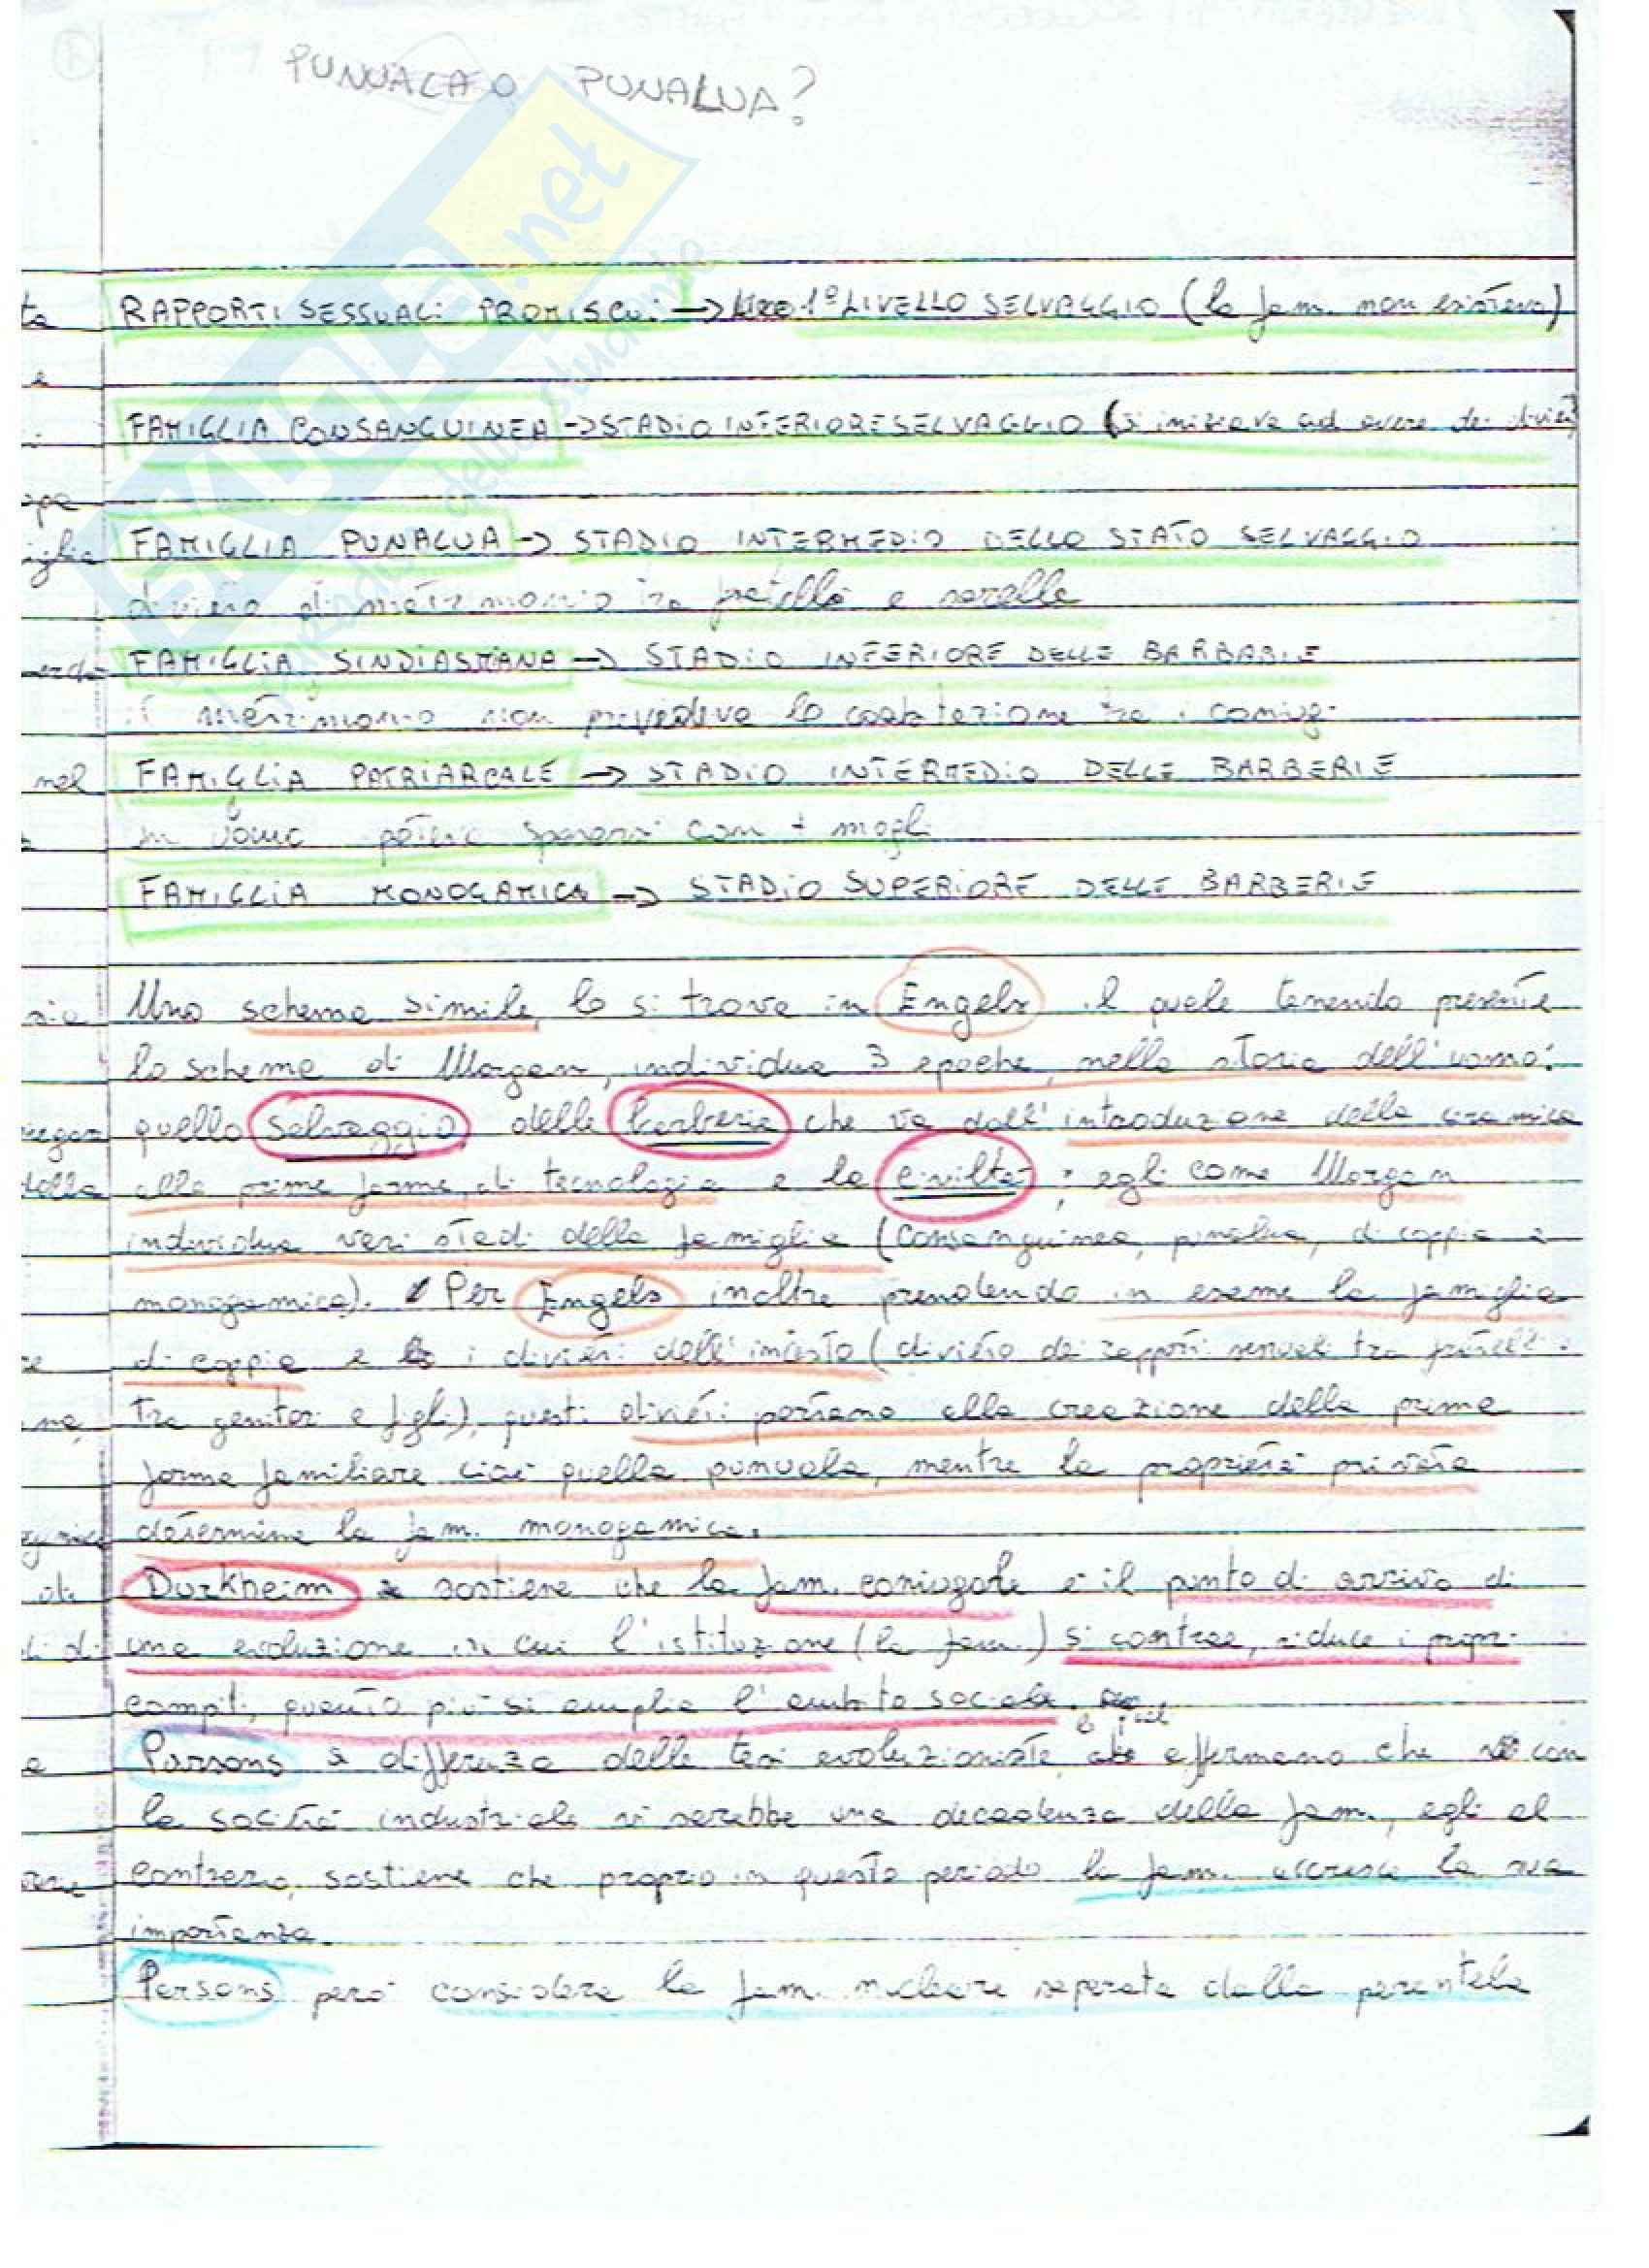 PUNUALA O PUNALUA?
RAPPORTI SESSUALI PROMISCUI -> 1º LIVELLO SELVAGGIO (la fam. non esisteva)
FAMIGLIA CONSANGUINEA -> STADIO INFERIORE SELVAGGIO (si iniziava ad avere dei divieti)
FAMIGLIA PUNALUA -> STADIO INTERMEDIO DELLO STATO SELVAGGIO
divieto di matrimonio tra fratelli e sorelle
FAMIGLIA SINDIASMIANA -> STADIO INFERIORE DELLE BARBARIE
il matrimonio non prevedeva la coabitazione tra i coniugi
FAMIGLIA PATRIARCALE -> STADIO INTERMEDIO DELLE BARBERIE
un uomo poteva sposarsi con + mogli
FAMIGLIA MONOGAMICA -> STADIO SUPERIORE DELLE BARBERIE
Uno schema simile lo si trova in Engels il quale tenendo presente
lo schema di Morgan, individua 3 epoche nella storia dell'uomo:
quello selvaggio, delle barberie che va dall'introduzione della ceramica
alle prime forme di tecnologia e la civiltà; egli come Morgan
individua vari stadi della famiglia (consanguinea, punalua, di coppia e
monogamica). Per Engels inoltre prendendo in esame la famiglia
di coppia e i divieti dell'incesto (divieto dei rapporti sessuali tra fratelli e
tra genitori e figli), questi divieti portano alla creazione della prima
forma familiare cioè quella punuala, mentre la proprietà privata
determina la fam. monogamica.
Durkheim sostiene che la fam. coniugale è il punto di arrivo di
una evoluzione in cui l'istituzione (la fam.) si contrae, riduce i propri
compiti, quanto più si amplia l'ambito sociale.
Parsons a differenza delle tesi evoluzioniste le quali affermano che con
la società industriale vi sarebbe una decadenza della fam., egli al
contrario, sostiene che proprio in questo periodo la fam. accresce la sua
importanza.
Parsons però considera la fam. nucleare separata dalla parentela
SKUOLA.net